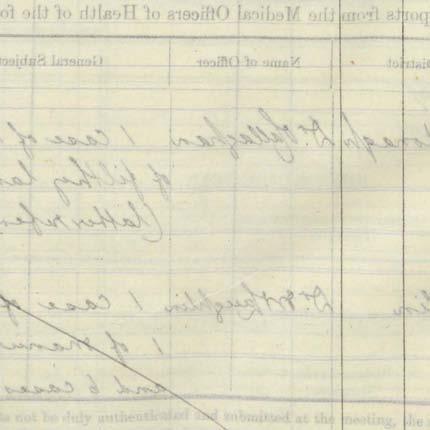 ports from the Medical Officers of Health of the fo
District Name of Officer General Subject
Dr. Callaghan 1 case of
of filthy lan
(latter refer
Dr. McLaughlin 1 case of
1 of
and 6 cases
ts not be duly authenticated and submitted at the meeting, the